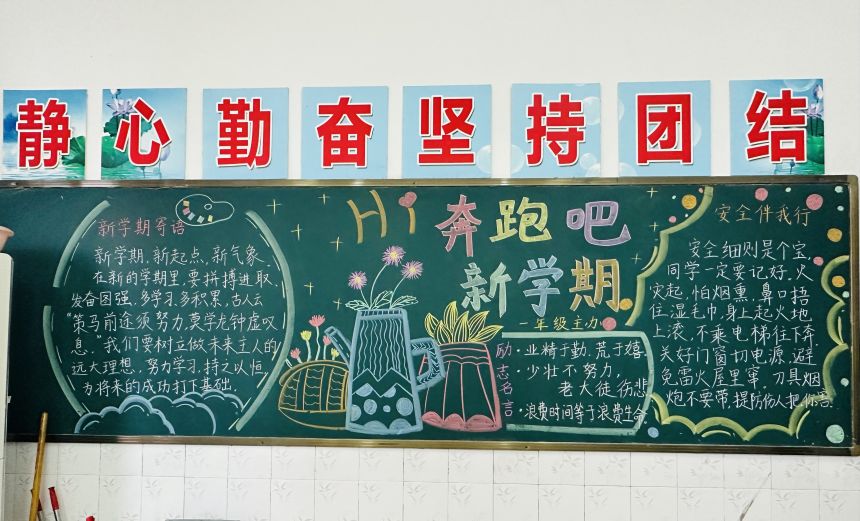 静心勤奋坚持团结
Hi 奔跑吧
新学期
一年级主办
新学期寄语
新学期，新起点，新气象，
在新的学期里，要拼搏进取，
发奋图强，多学习，多积累，古人云
“策马前途须努力，莫学龙钟虚叹
息。”我们要树立做未来主人的
远大理想，努力学习，持之以恒，
为将来的成功打下基础。
励志名言
·业精于勤，荒于嬉
·少壮不努力，
老大徒伤悲
·浪费时间等于浪费生命。
安全伴我行
安全细则是个宝，
同学一定要记好。火
灾起，怕烟熏，鼻口捂
住湿毛巾，身上起火地
上滚，不乘电梯往下奔
关好门窗切电源，避
免雷火屋里窜，刀具烟
炮不要带，提防伤人把你害